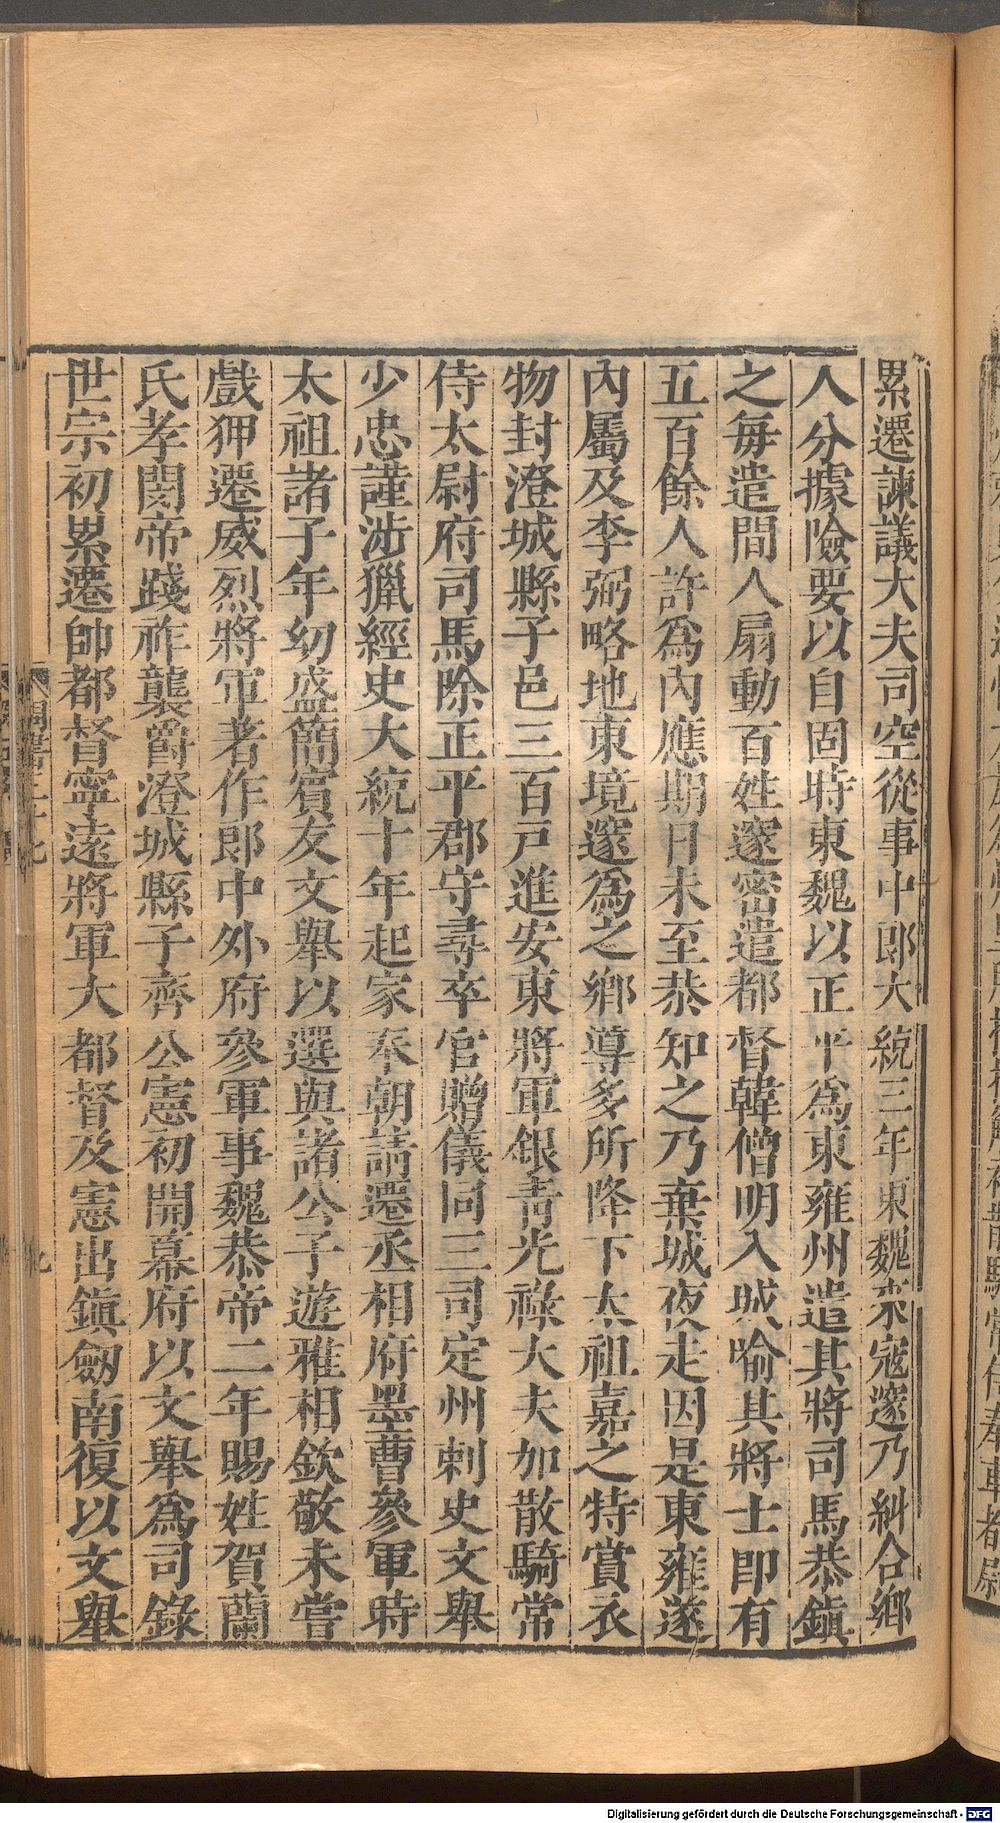 累遷諫議大夫司空從事中郎大統三年東魏來寇邃乃糾合鄉
人分據險要以自固時東魏以正平為東雍州遣其將司馬恭鎮
之毎遣間人扇動百姓邃密遣都督韓僧明入城喻其將士即有
五百餘人許為內應期日未至恭知之乃棄城夜走因是東雍遂
內屬及李弼略地東境邃為之鄉導多所降下太祖嘉之特賞衣
物封澄城縣子邑三百戸進安東將軍銀青光祿大夫加散騎常
侍太尉府司馬除正平郡守尋卒官贈儀同三司定州刺史文舉
少忠謹涉獵經史大統十年起家奉朝請遷丞相府墨曹參軍時
太祖諸子年幼盛簡賓友文舉以選與諸公子遊雅相欽敬未嘗
戲狎遷威烈將軍著作郎中外府參軍事魏恭帝二年賜姓賀蘭
氏孝閔帝踐祚襲爵澄城縣子齊公憲初開幕府以文舉為司錄
世宗初累遷帥都督寧遠將軍大都督及憲出鎮劒南復以文舉
Digitalisierung gefördert durch die Deutsche Forschungsgemeinschaft - DFG